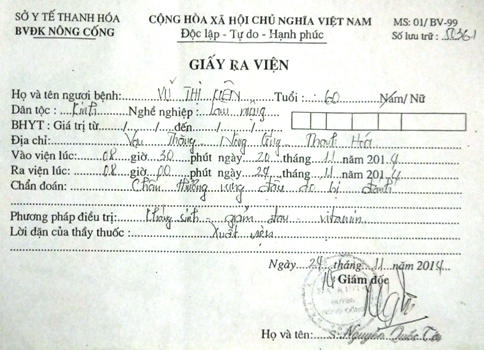 SỞ Y TẾ THANH HÓA
BVĐK NÔNG CỐNG
CỘNG HÒA XÃ HỘI CHỦ NGHĨA VIỆT NAM
Độc lập - Tự do - Hạnh phúc
MS: 01/ BV-99
Số lưu trữ :
GIẤY RA VIỆN
Họ và tên người bệnh: VŨ THỊ Tuổi : 60 Nam/ Nữ
Dân tộc : Kinh Nghề nghiệp : Làm ruộng
BHYT : Giá trị từ / / đến / /
Địa chỉ: Thắng Nông Cống Thanh Hóa
Vào viện lúc: 08 giờ 30 phút ngày 20 tháng 11 năm 2014
Ra viện lúc: 08 giờ 00 phút ngày 24 tháng 11 năm 2014
Chẩn đoán: Chấn thương vùng đầu do bị đánh
Phương pháp điều trị: Kháng sinh giảm đau vitamin
Lời dặn của thầy thuốc : Xuất viện
Ngày 24 tháng 11 năm 2014
Giám đốc
Họ và tên: Nguyễn Quốc